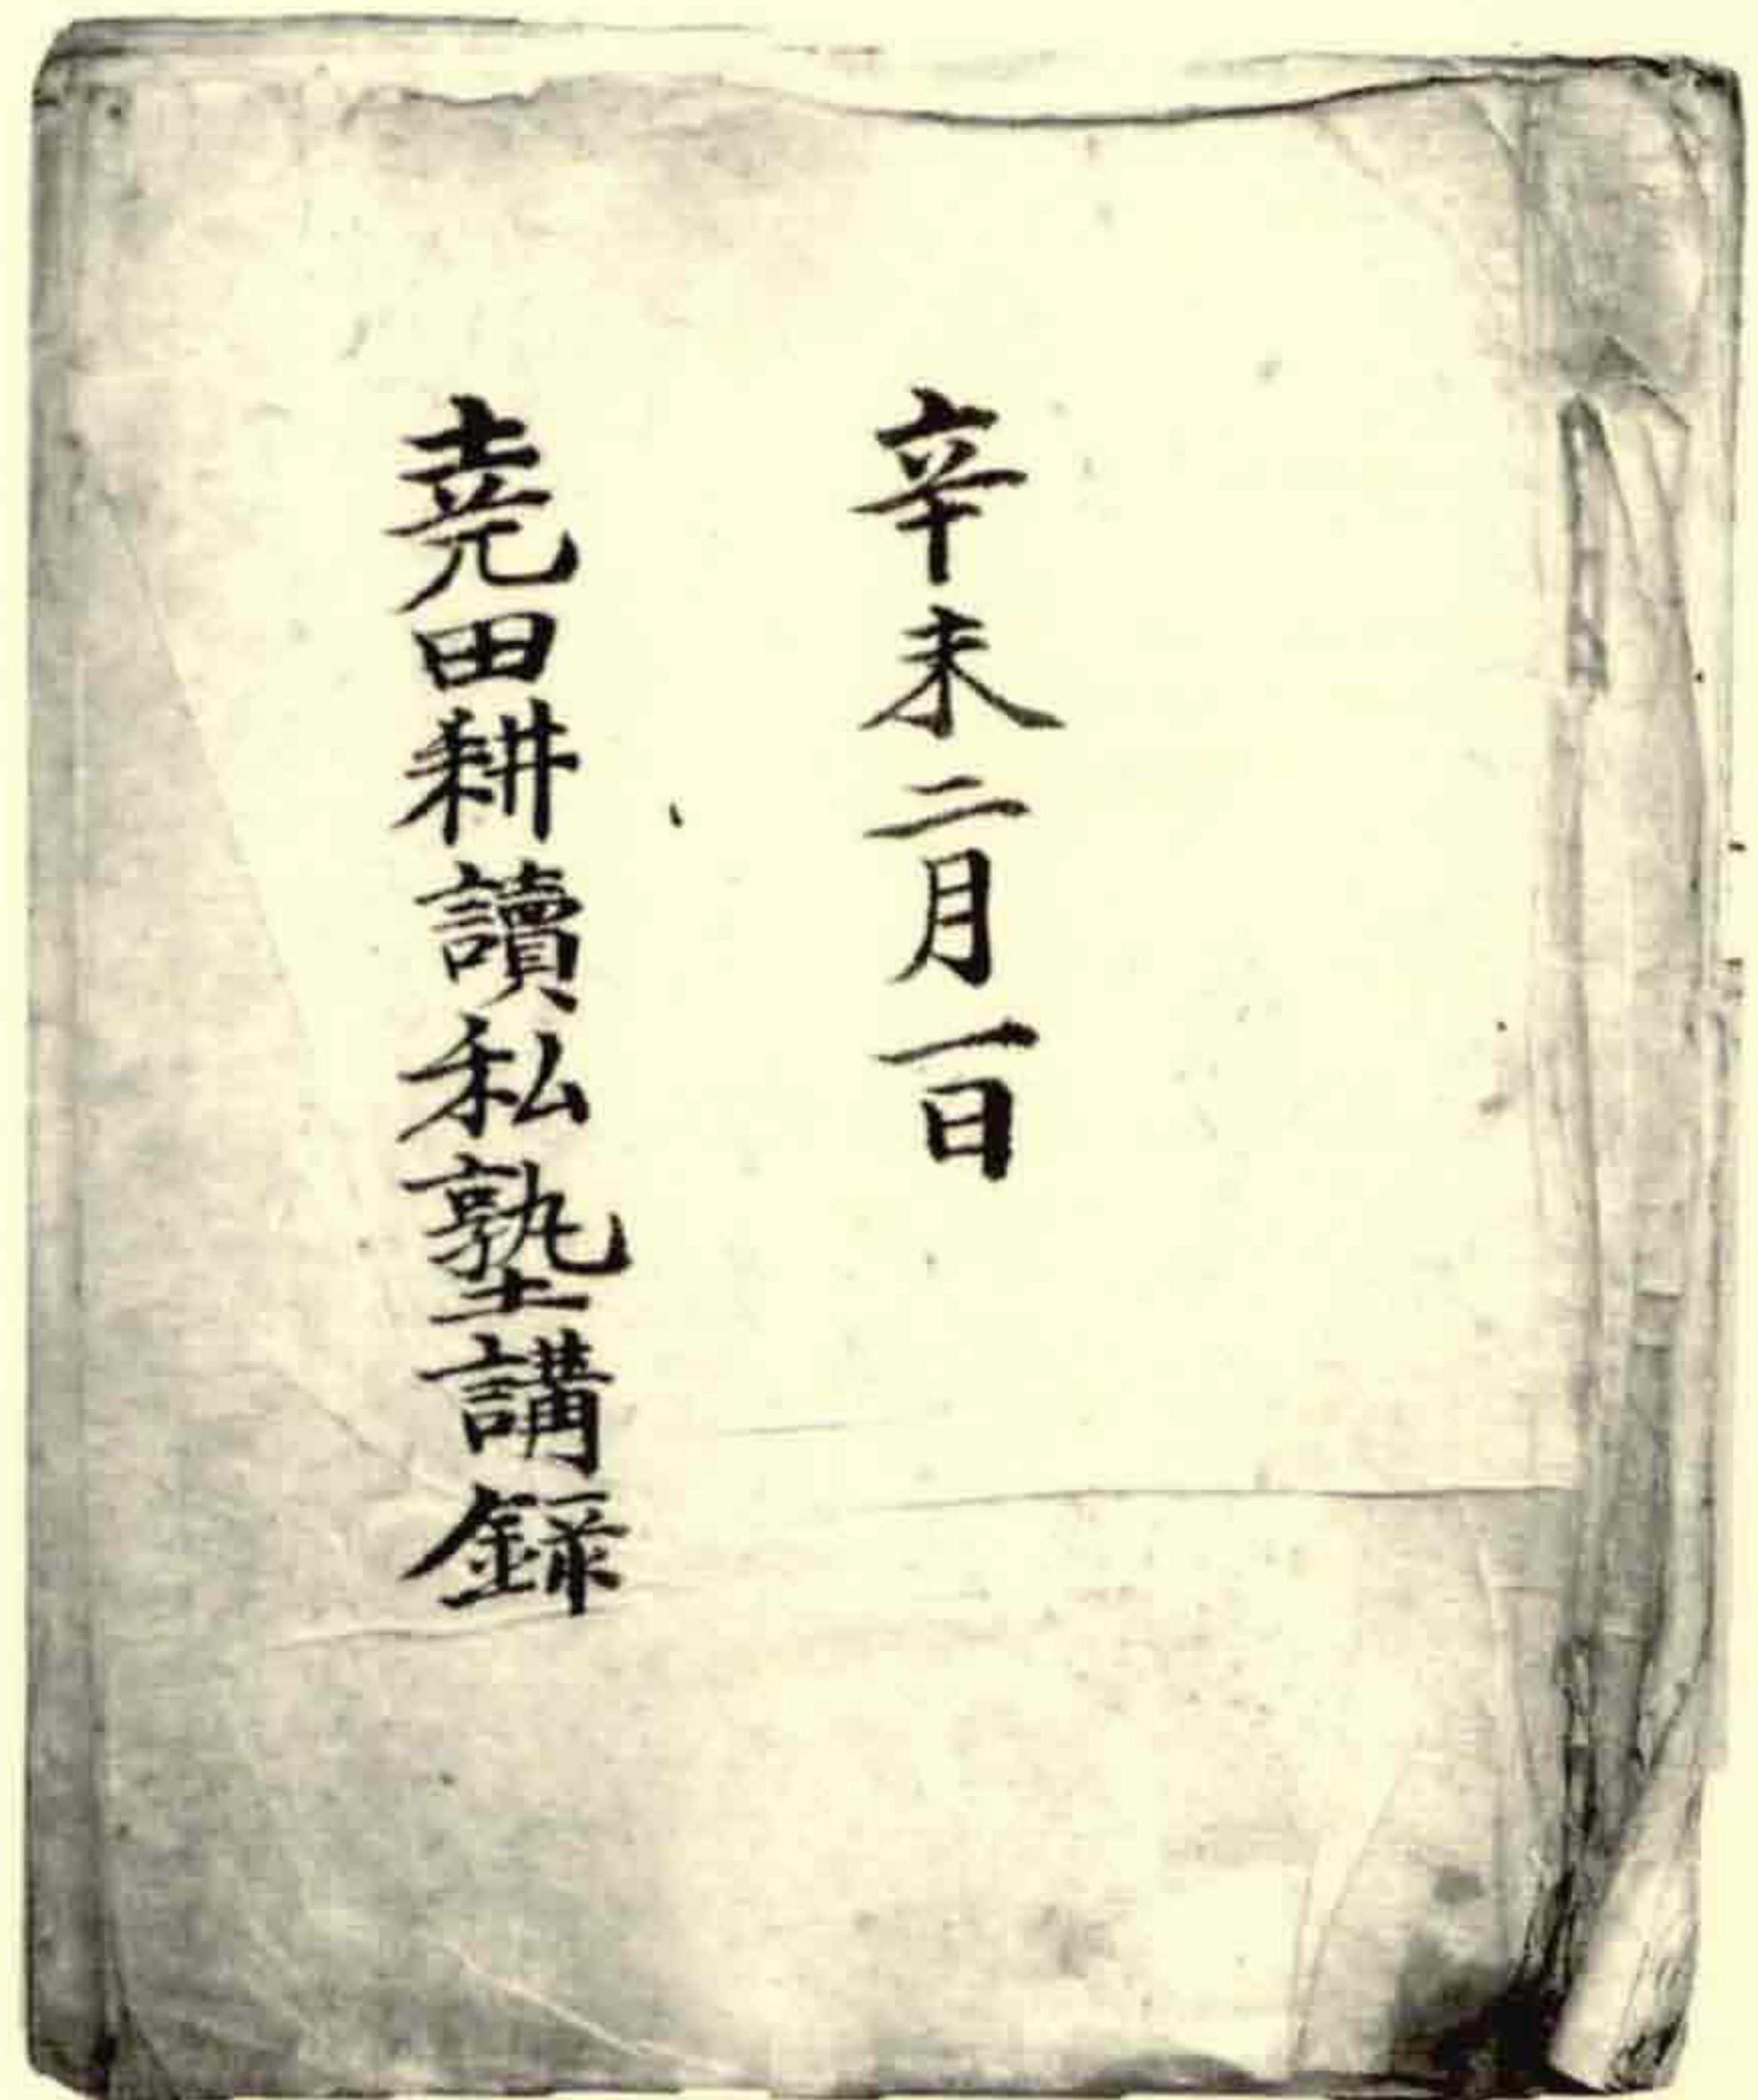 辛未二月一日
堯田耕讀私塾講録